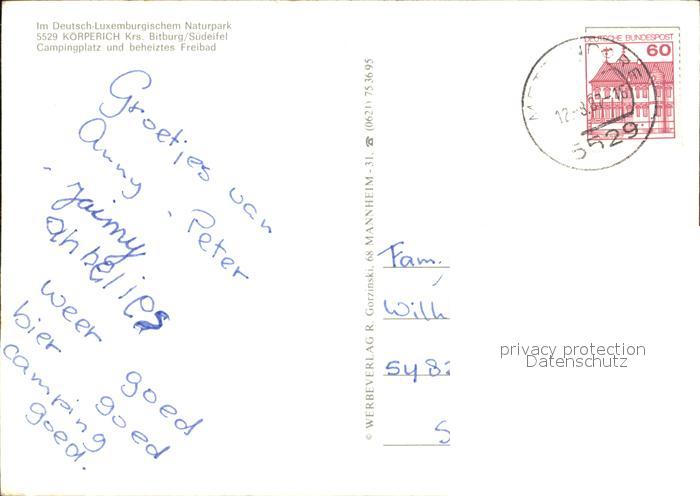 Im Deutsch-Luxemburgischem Naturpark
5529 KÖRPERICH Krs. Bitburg/Südeifel
Campingplatz und beheiztes Freibad
Groetjes van
Anny - Peter
- Jaimy
annelies
weer goed
bier goed
camping
goed.
© WERBEVERLAG R. Gorzinski, 68 MANNHEIM - 31, ☎ (0621) 75 36 95
DEUTSCHE BUNDESPOST
60
5529
Fam.
Wilh
S
privacy protection
Datenschutz